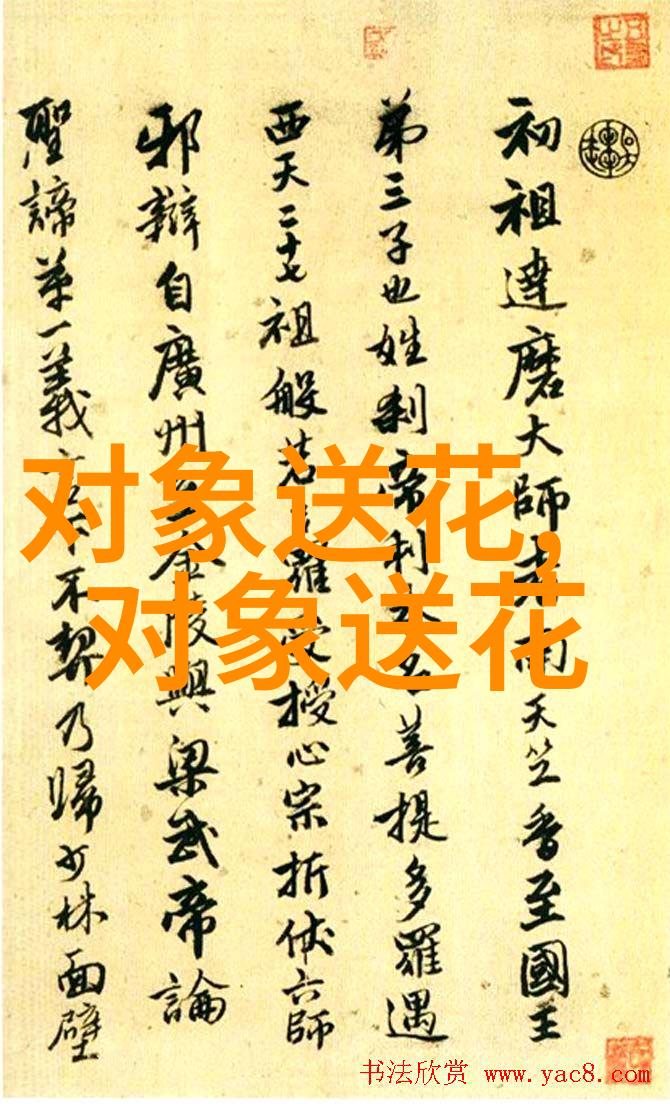 初祖達磨大師者南天竺香至國王
第三子也姓刹帝利本名菩提多羅遇
西天二十七祖般若多羅受授心宗折伏六師
邪辯自廣州至金陵與梁武帝論
聖諦第一義言下不契乃歸少林面壁
对象送花,
对象送花
书法欣赏 www.yac8.com